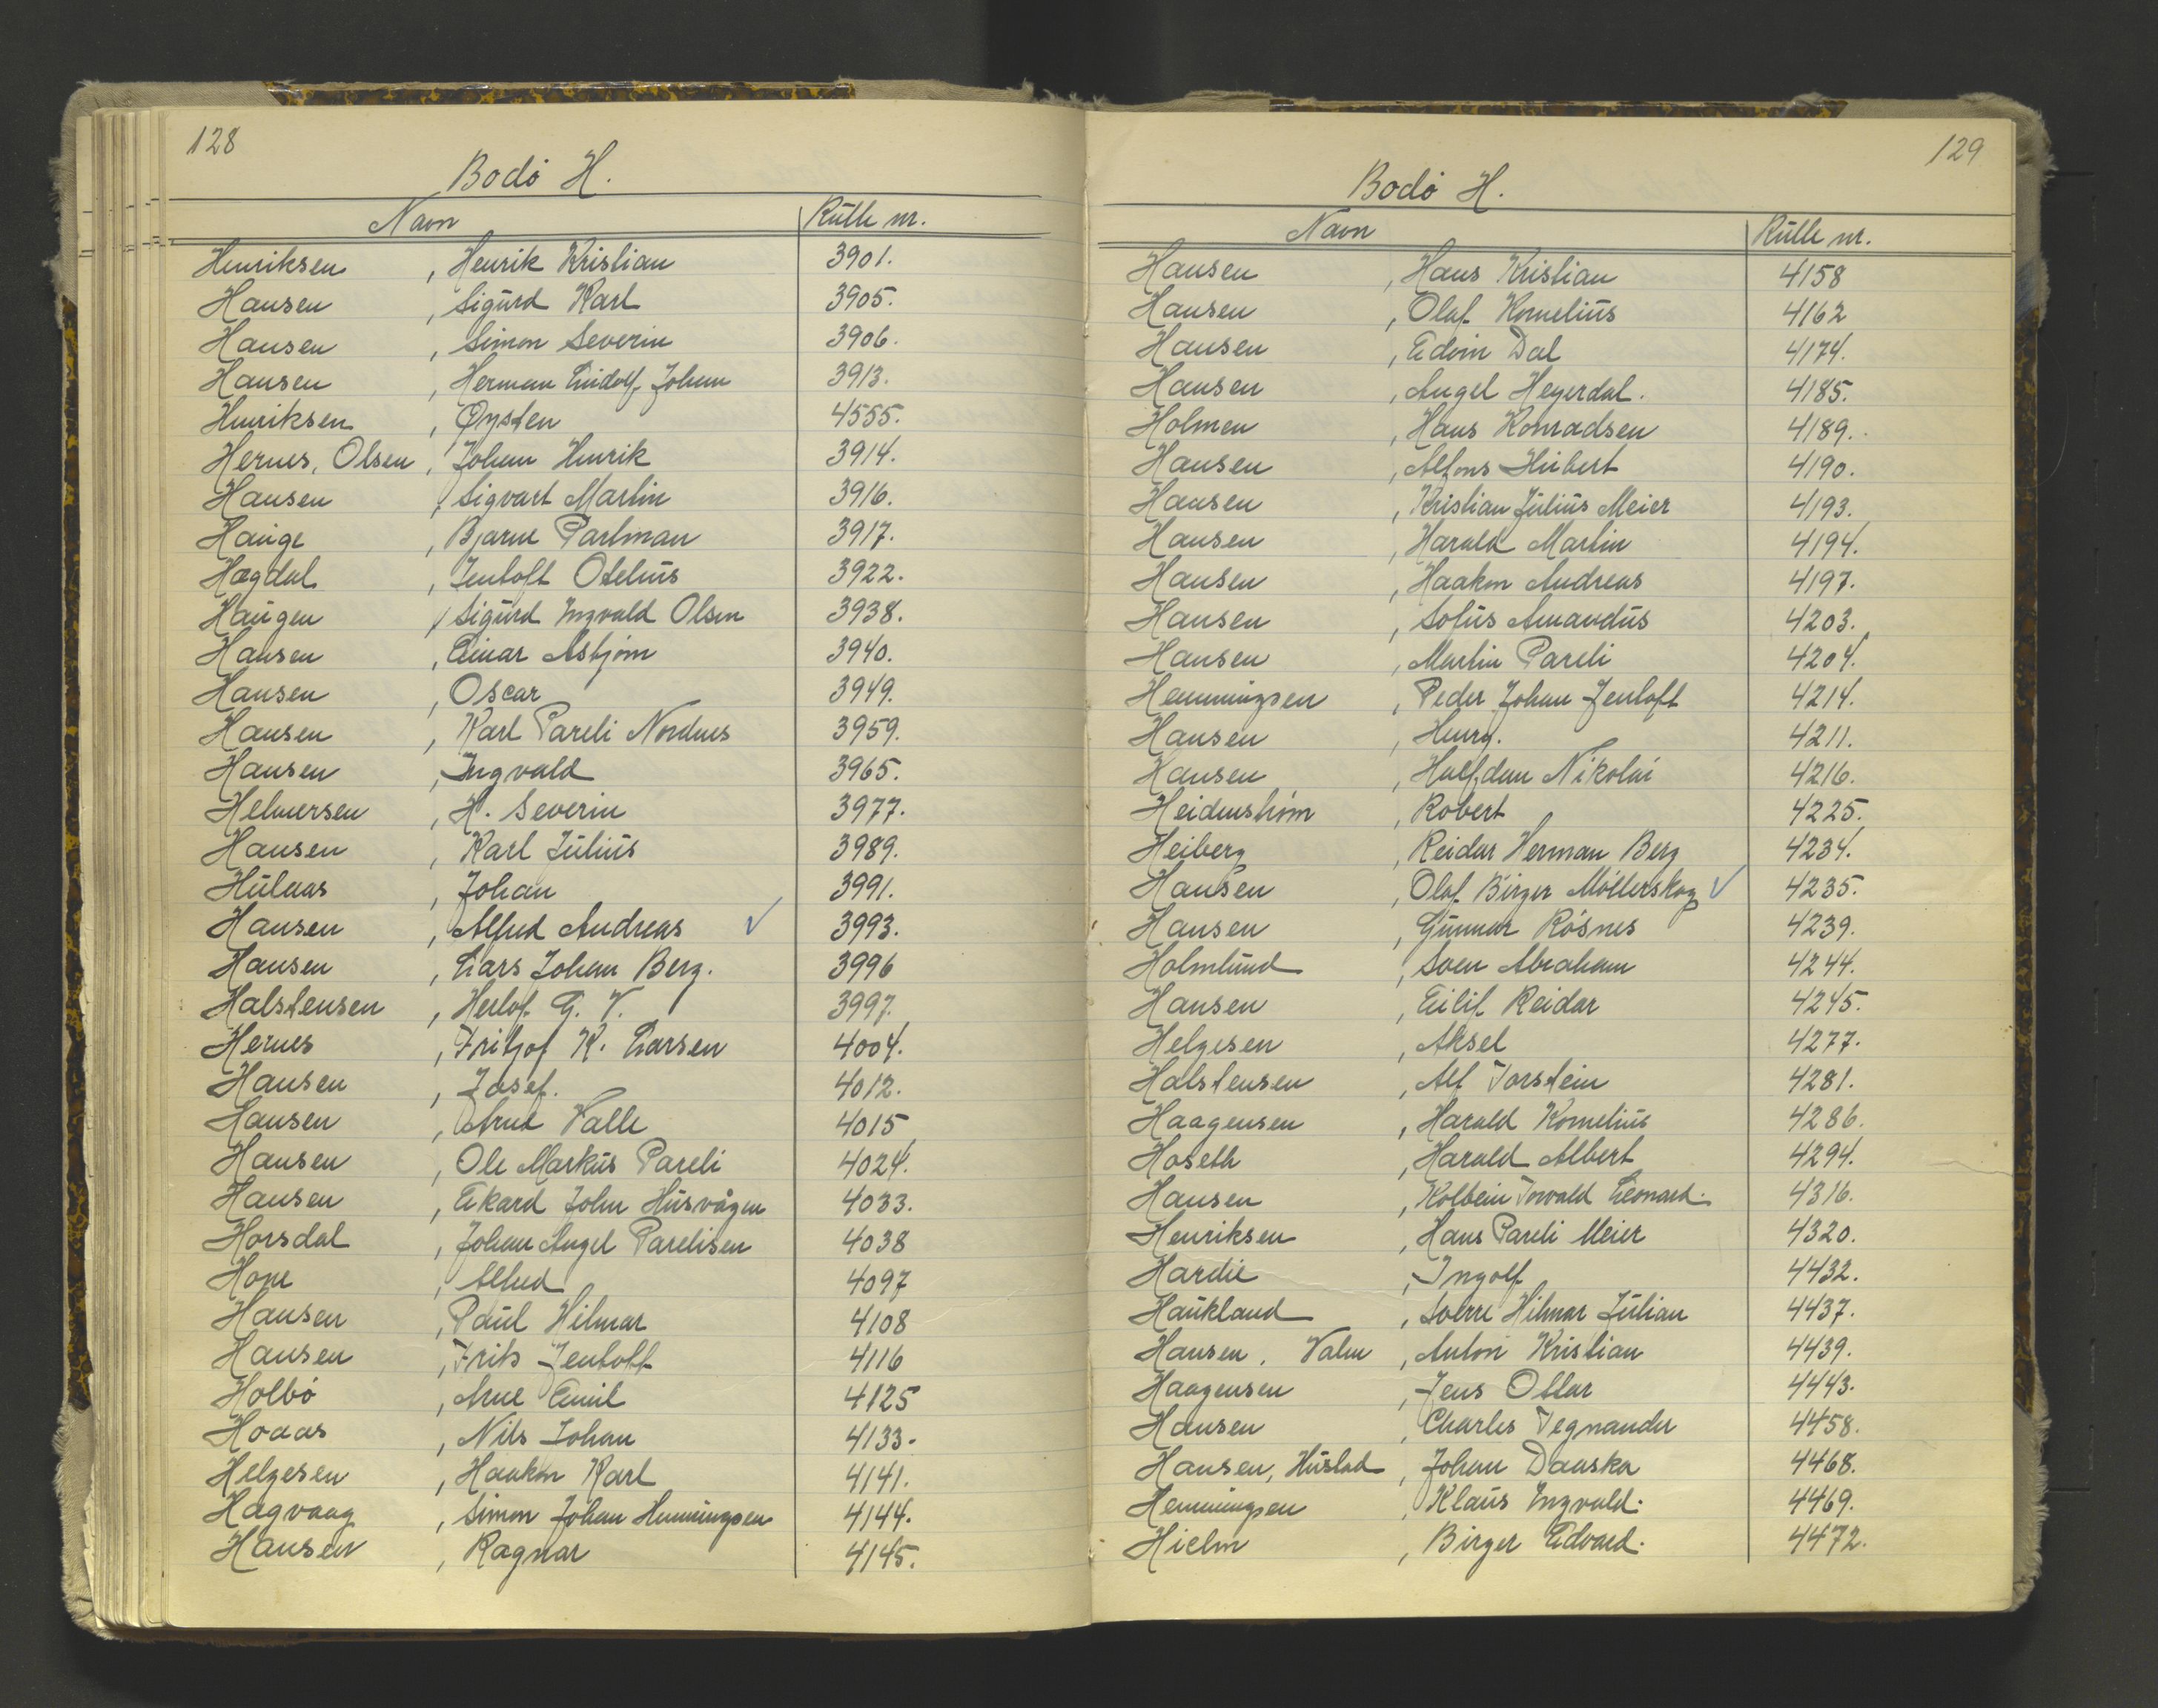 128
Bodø H.
Navn Rulle nr.
Henriksen, Henrik Kristian 3901.
Hansen, Sigurd Karl 3905.
Hansen, Simon Severin 3906.
Hansen, Herman Lindolf Johan 3913.
Henriksen, Øysten 4555.
Hernes, Olsen, Johan Henrik 3914.
Hansen, Sigvart Martin 3916.
Hauge, Bjarne Partman 3917.
Hægdal, Jentoft Otelius 3922.
Haugen, Sigurd Ingvald Olsen 3938.
Hansen, Einar Asbjørn 3940.
Hansen, Oscar 3949.
Hansen, Karl Pareli Nordnes 3959.
Hansen, Ingvald 3965.
Helmersen, H. Severin 3977.
Hansen, Karl Julius 3989.
Hulaas, Johan 3991.
Hansen, Alfred Andreas ✓ 3993.
Hansen, Lars Johan Berg. 3996
Halstensen, Herlof G. V. 3997.
Hernes, Fritjof K. Larsen 4004.
Hansen, Josef. 4012.
Hansen, Arne Valle 4015
Hansen, Ole Markus Pareli 4024.
Hansen, Eikard John Husvågen 4033.
Horsdal, Johan Angel Parelisen 4038
Hope, Alfred 4097
Hansen, Paul Hilmar 4108
Hansen, Frits Jentoft 4116
Holbø, Arne Emil 4125
Hoaas, Nils Johan 4133.
Helgesen, Haakon Karl 4141.
Hagvaag, Simon Johan Henningsen 4144.
Hansen, Ragnar 4145.
129
Bodø H.
Navn Rulle nr.
Hansen, Hans Kristian 4158
Hansen, Olaf Kornelius 4162
Hansen, Edvin Dal 4174.
Hansen, Angel Heyerdal. 4185.
Holmen, Hans Konradsen 4189.
Hansen, Alfons Hubert 4190.
Hansen, Kristian Julius Meier 4193.
Hansen, Harald Martin 4194.
Hansen, Haakon Andreas 4197.
Hansen, Sofus Amandus 4203.
Hansen, Martin Pareli 4204.
Hemmingsen, Peder Johan Jentoft 4214.
Hansen, Henry. 4211.
Hansen, Halfdan Nikolai 4216.
Heidenstrøm, Robert 4225.
Heiberg, Reidar Herman Berg 4234.
Hansen, Olaf Birger Møllerskog ✓ 4235.
Hansen, Gunnar Røsnes 4239.
Holmlund, Sven Abraham 4244.
Hansen, Eilif Reidar 4245.
Helgesen, Aksel 4277.
Halstensen, Alf Torstein 4281.
Haagensen, Harald Kornelius 4286.
Hoseth, Harald Albert 4294.
Hansen, Kolbein Torvald Leonard. 4316.
Henriksen, Hans Pareli Meier 4320.
Hardie, Ingolf 4432.
Haukland, Sverre Hilmar Julian 4437.
Hansen, Valen, Anton Kristian 4439.
Haagensen, Jens Ottar 4443.
Hansen, Charles Tegnander 4458.
Hansen, Huslad, Johan Danska 4468.
Hemmingsen, Klaus Ingvald. 4469.
Hielm, Birger Edvard. 4472.